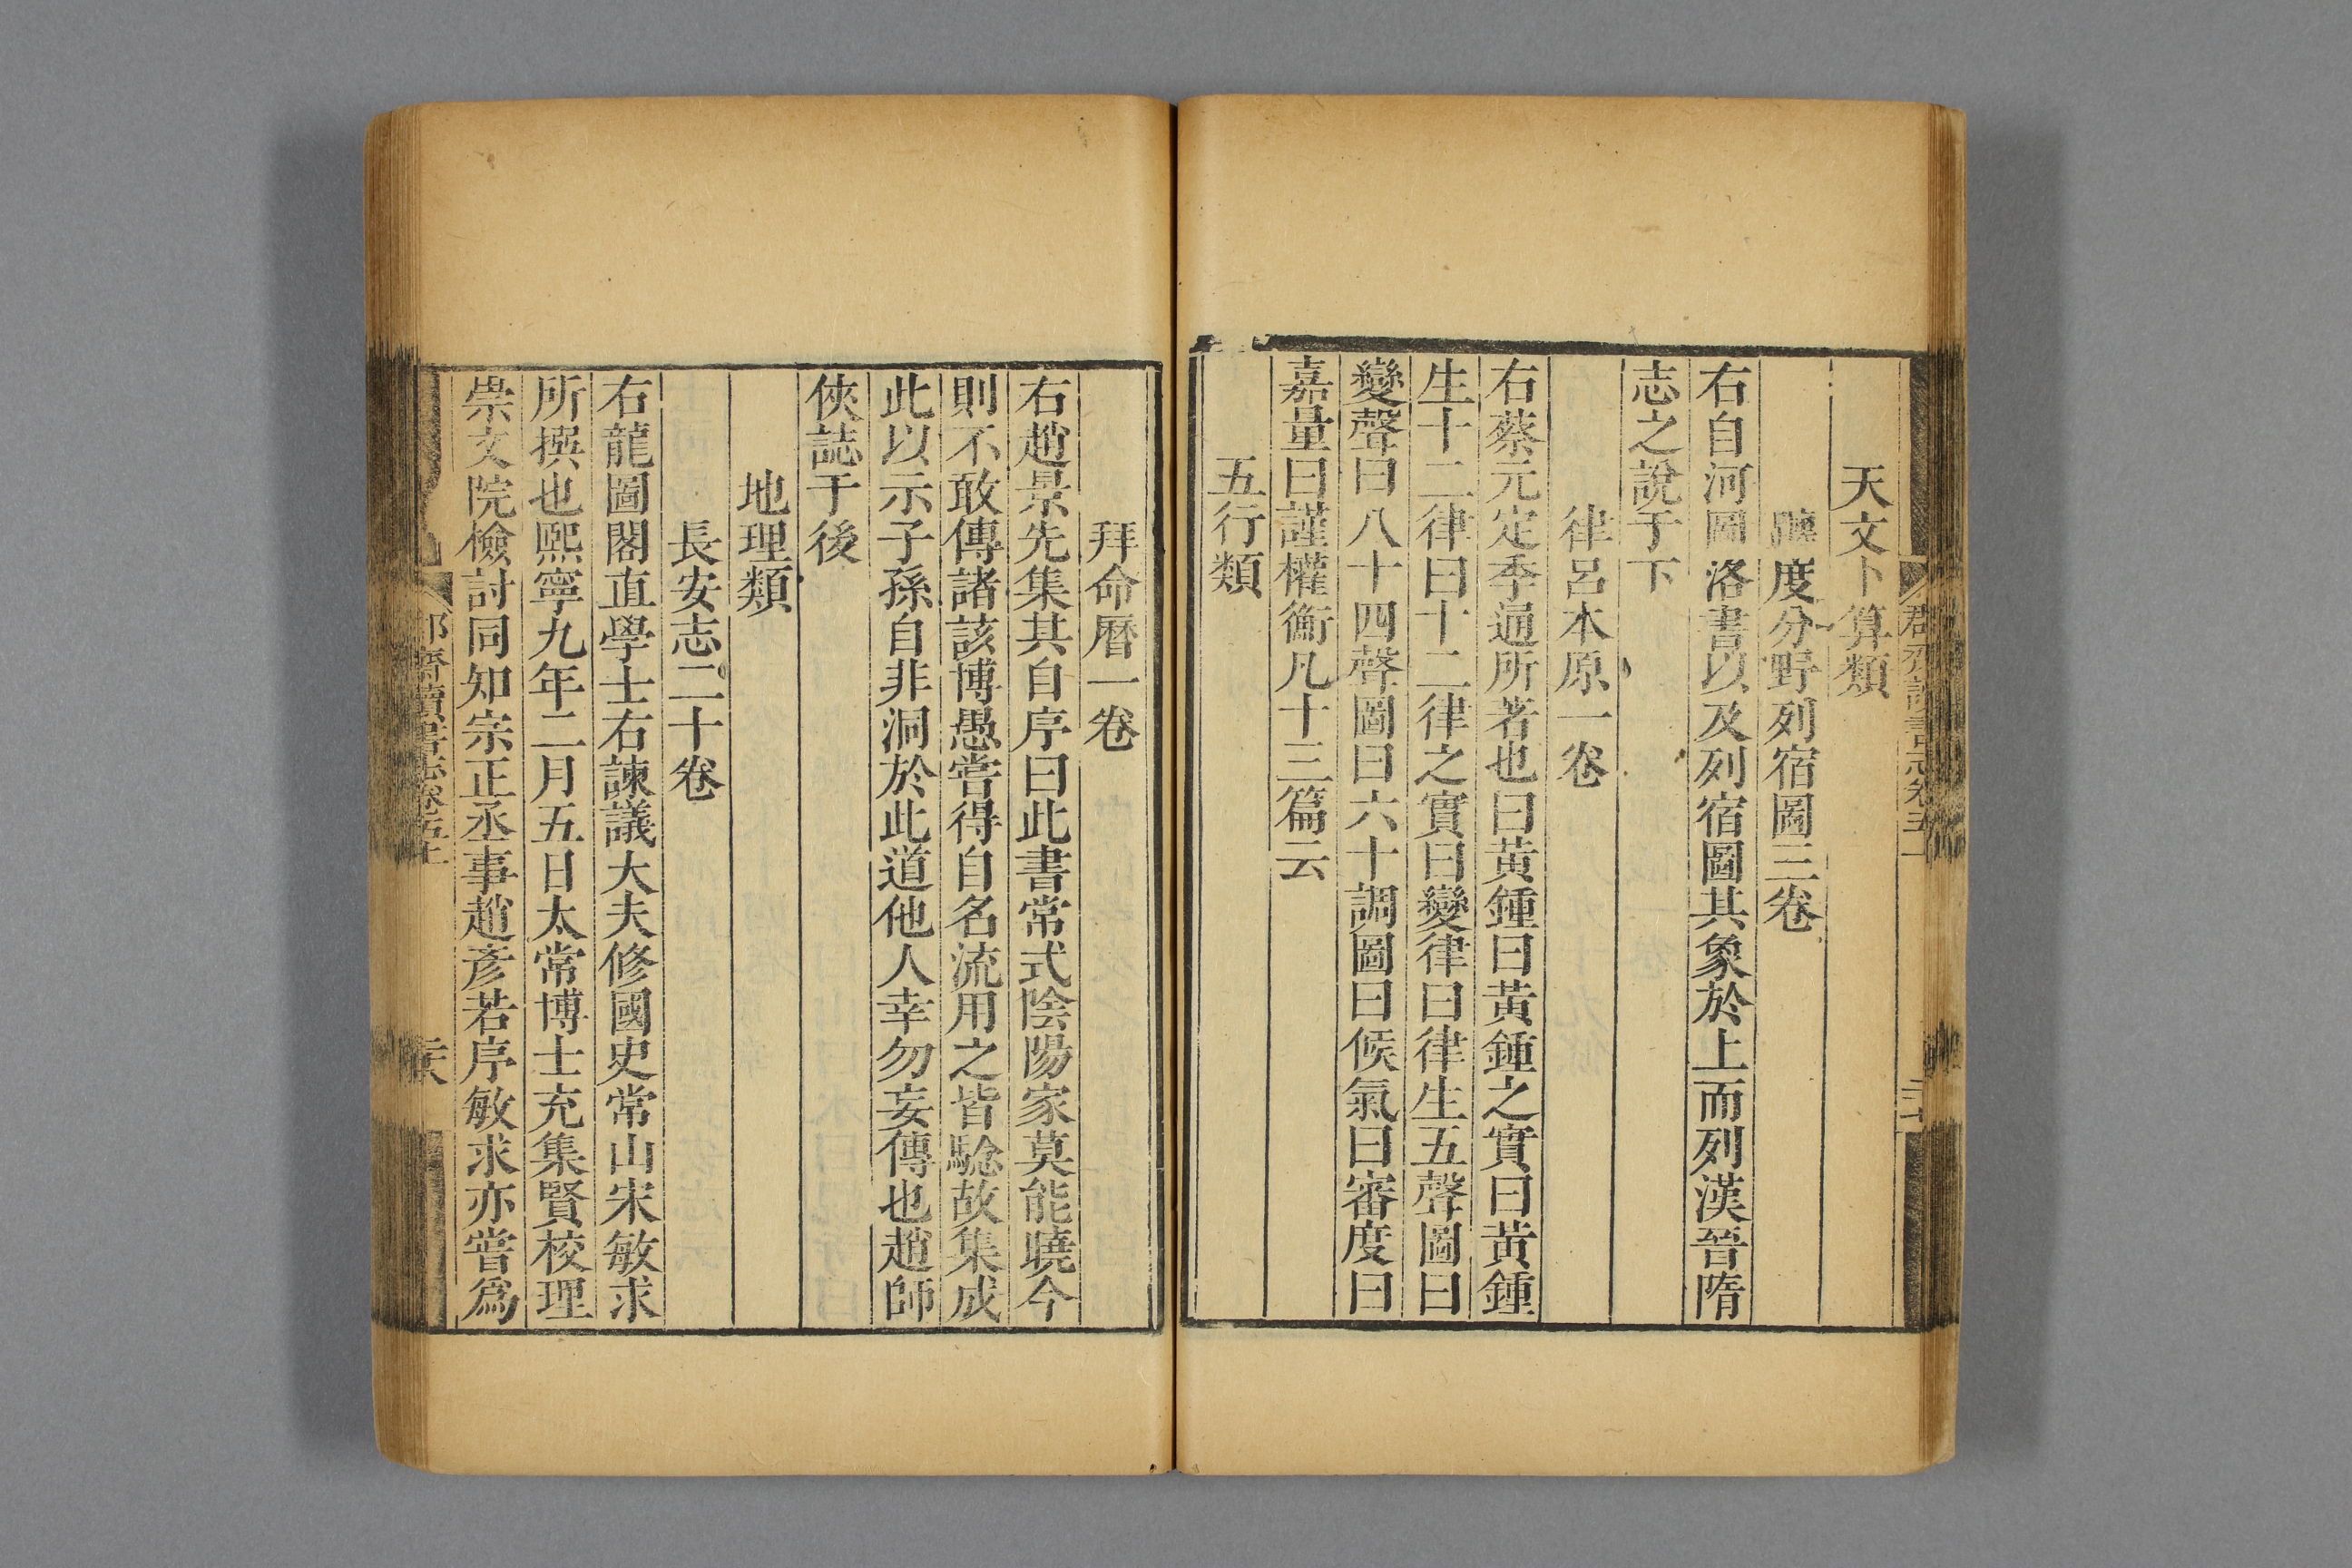 天文卜算類
躔度分野列宿圖三卷
右自河圖洛書以及列宿圖其象於上而列漢晉隋
志之說于下
律呂本原一卷
右蔡元定季通所著也曰黃鍾曰黃鍾之實曰黃鍾
生十二律曰十二律之實曰變律曰律生五聲圖曰
變聲曰八十四聲圖曰六十調圖曰候氣曰審度曰
嘉量曰謹權衡凡十三篇云
五行類
拜命曆一卷
右趙景先集其自序曰此書常式陰陽家莫能曉今
則不敢傳諸該博愚嘗得自名流用之皆驗故集成
此以示子孫自非洞於此道他人幸勿妄傳也趙師
俠誌于後
地理類
長安志二十卷
右龍圖閣直學士右諫議大夫修國史常山宋敏求
所撰也熙寧九年二月五日太常博士充集賢校理
崇文院檢討同知宗正丞事趙彥若序敏求亦嘗爲